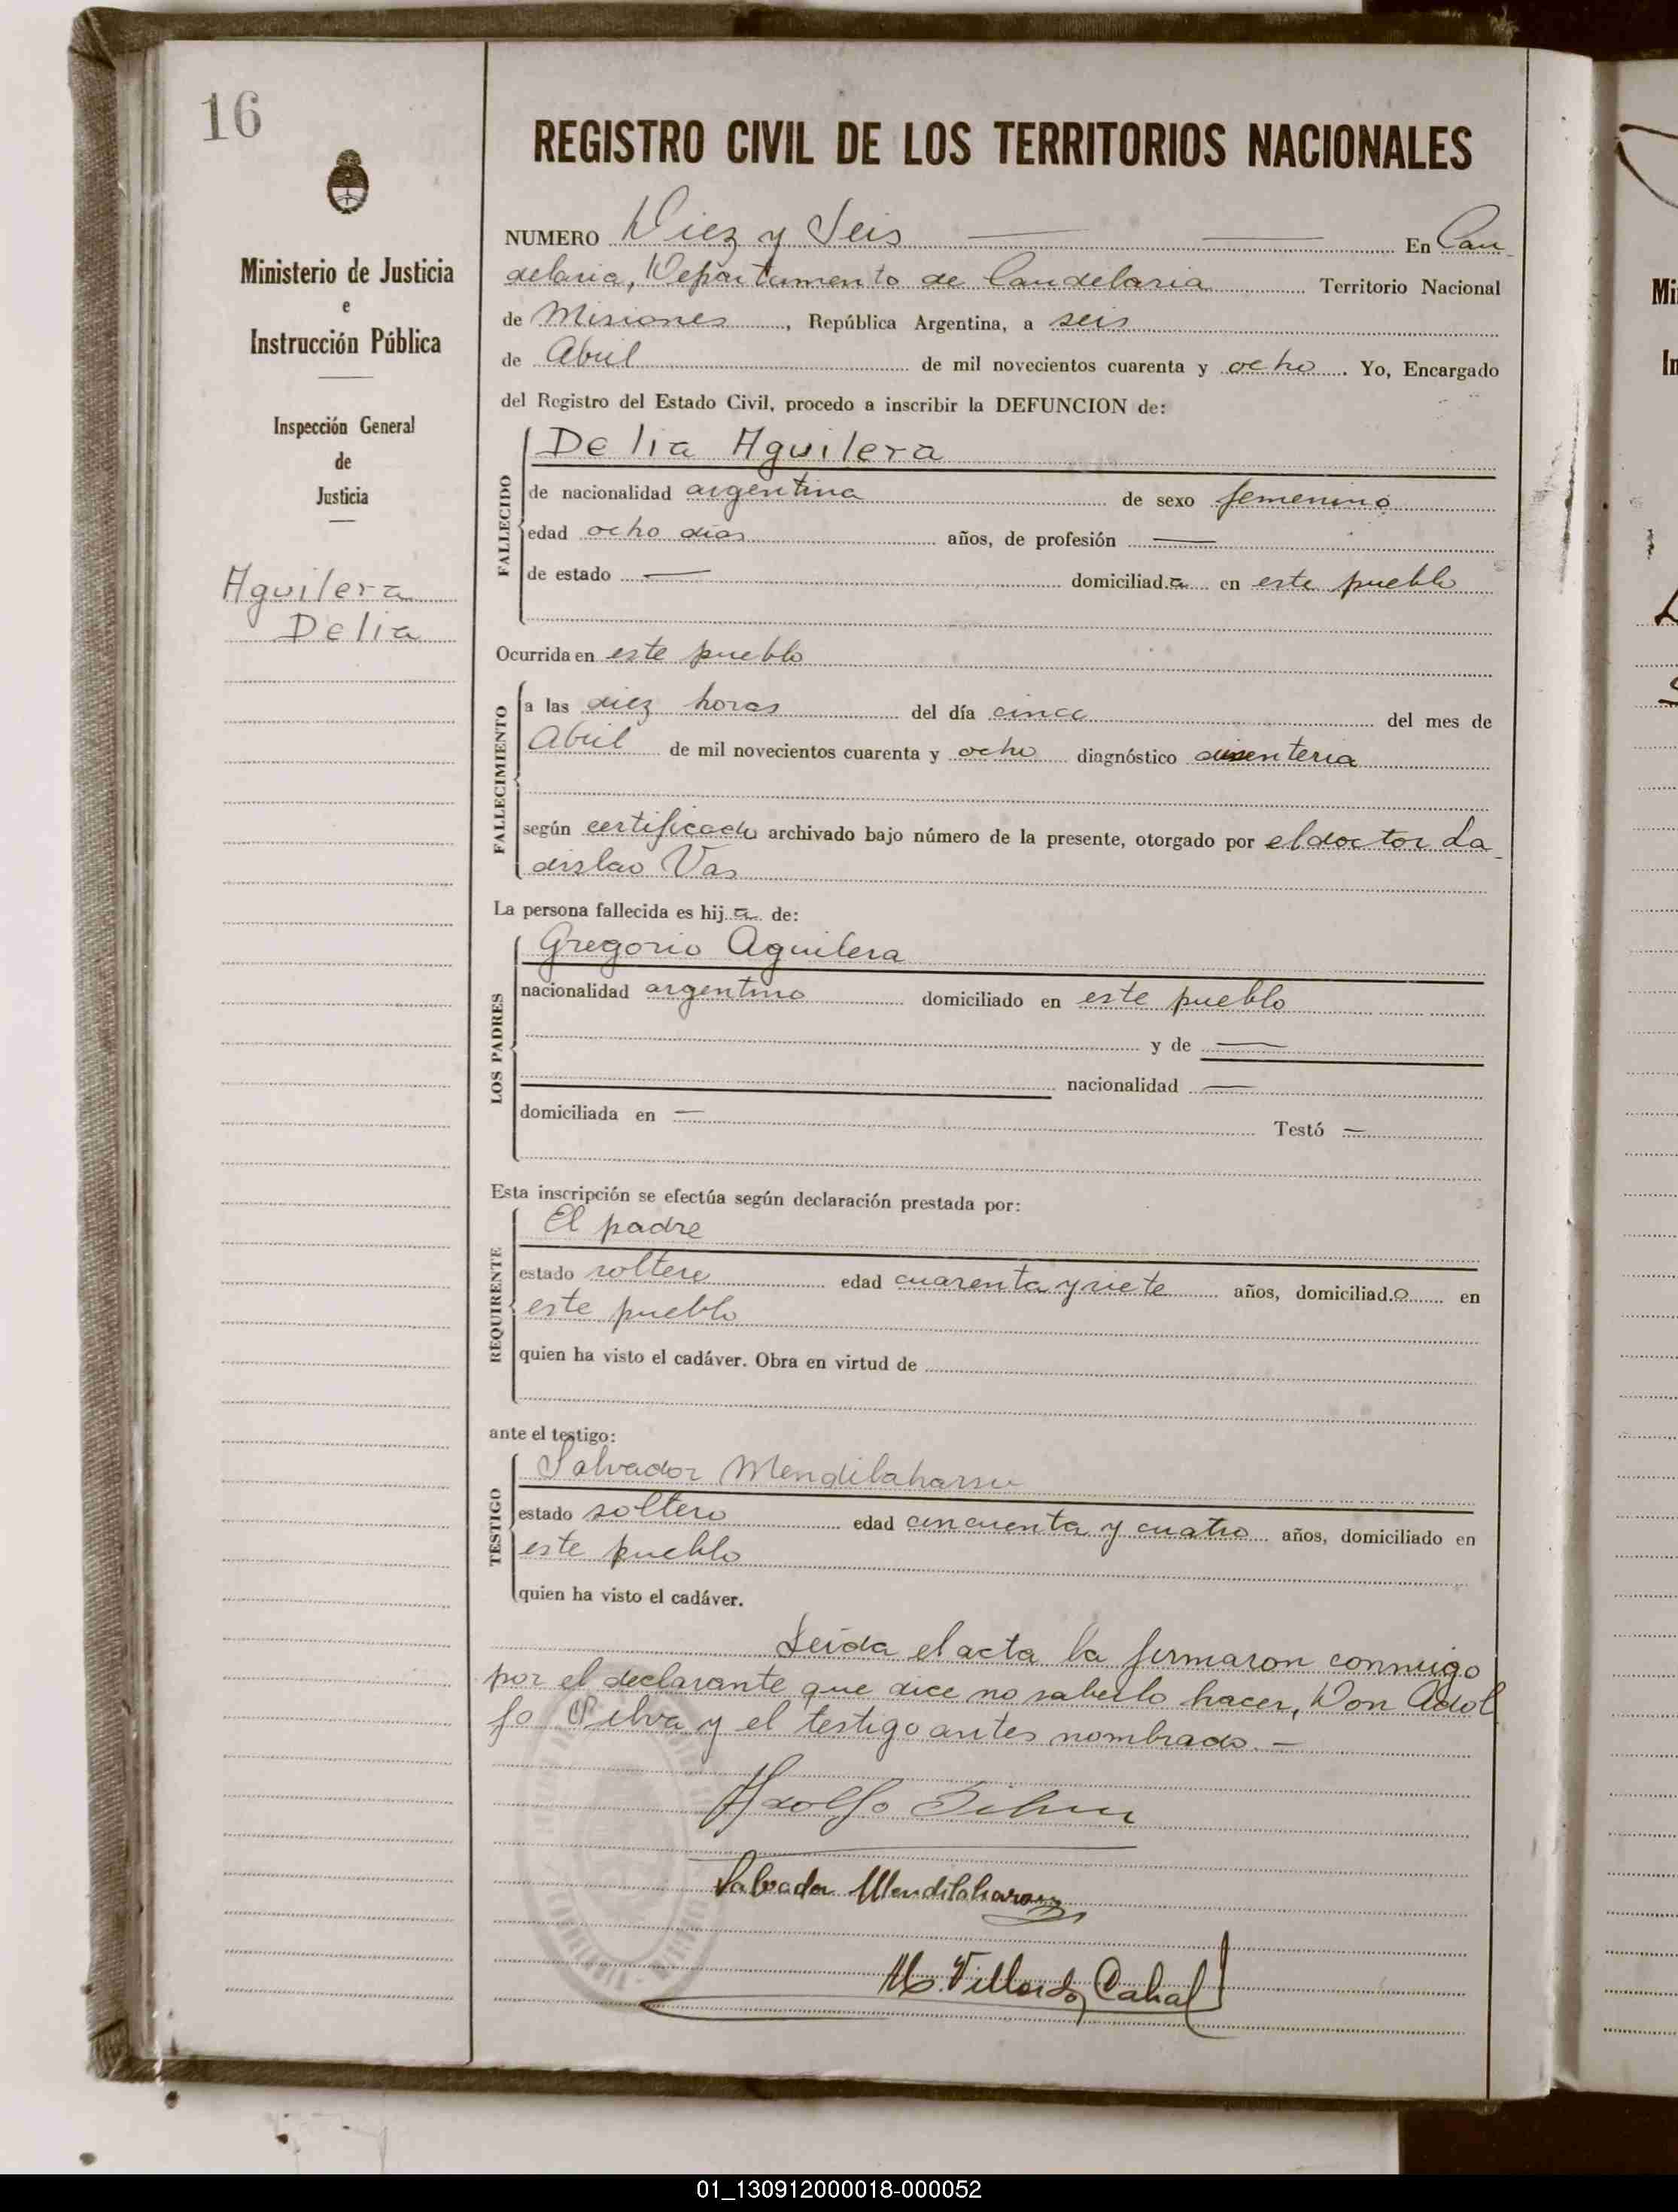 16
Ministerio de Justicia
e
Instrucción Pública
Inspección General
de
Justicia
Aguilera
Delia
REGISTRO CIVIL DE LOS TERRITORIOS NACIONALES
NUMERO Diez y Seis En Can
delaria, Departamento de Candelaria Territorio Nacional
de Misiones, República Argentina, a seis
de Abril de mil novecientos cuarenta y ocho. Yo, Encargado
del Registro del Estado Civil, procedo a inscribir la DEFUNCION de:
FALLECIDO
Delia Aguilera
de nacionalidad argentina de sexo femenino
edad ocho días años, de profesión —
de estado — domiciliad.a en este pueblo
Ocurrida en este pueblo
FALLECIMIENTO
a las diez horas del día cinco del mes de
Abril de mil novecientos cuarenta y ocho diagnóstico disenteria
según certificado archivado bajo número de la presente, otorgado por el doctor La
dislao Vas
La persona fallecida es hij.a de:
LOS PADRES
Gregorio Aguilera
nacionalidad argentino domiciliado en este pueblo
y de —
nacionalidad —
domiciliada en — Testó —
Esta inscripción se efectúa según declaración prestada por:
REQUIRENTE
El padre
estado soltero edad cuarenta y siete años, domiciliad.o en
este pueblo
quien ha visto el cadáver. Obra en virtud de
ante el testigo:
TESTIGO
Salvador Mendilaharsu
estado soltero edad cincuenta y cuatro años, domiciliado en
este pueblo
quien ha visto el cadáver.
Leída el acta la firmaron conmigo
por el declarante que dice no saberlo hacer, Don Adol
fo Silva y el testigo antes nombrado. —
Adolfo Silva
Salvador Mendilaharsu
M. Villordo Cabal
01_130912000018-000052